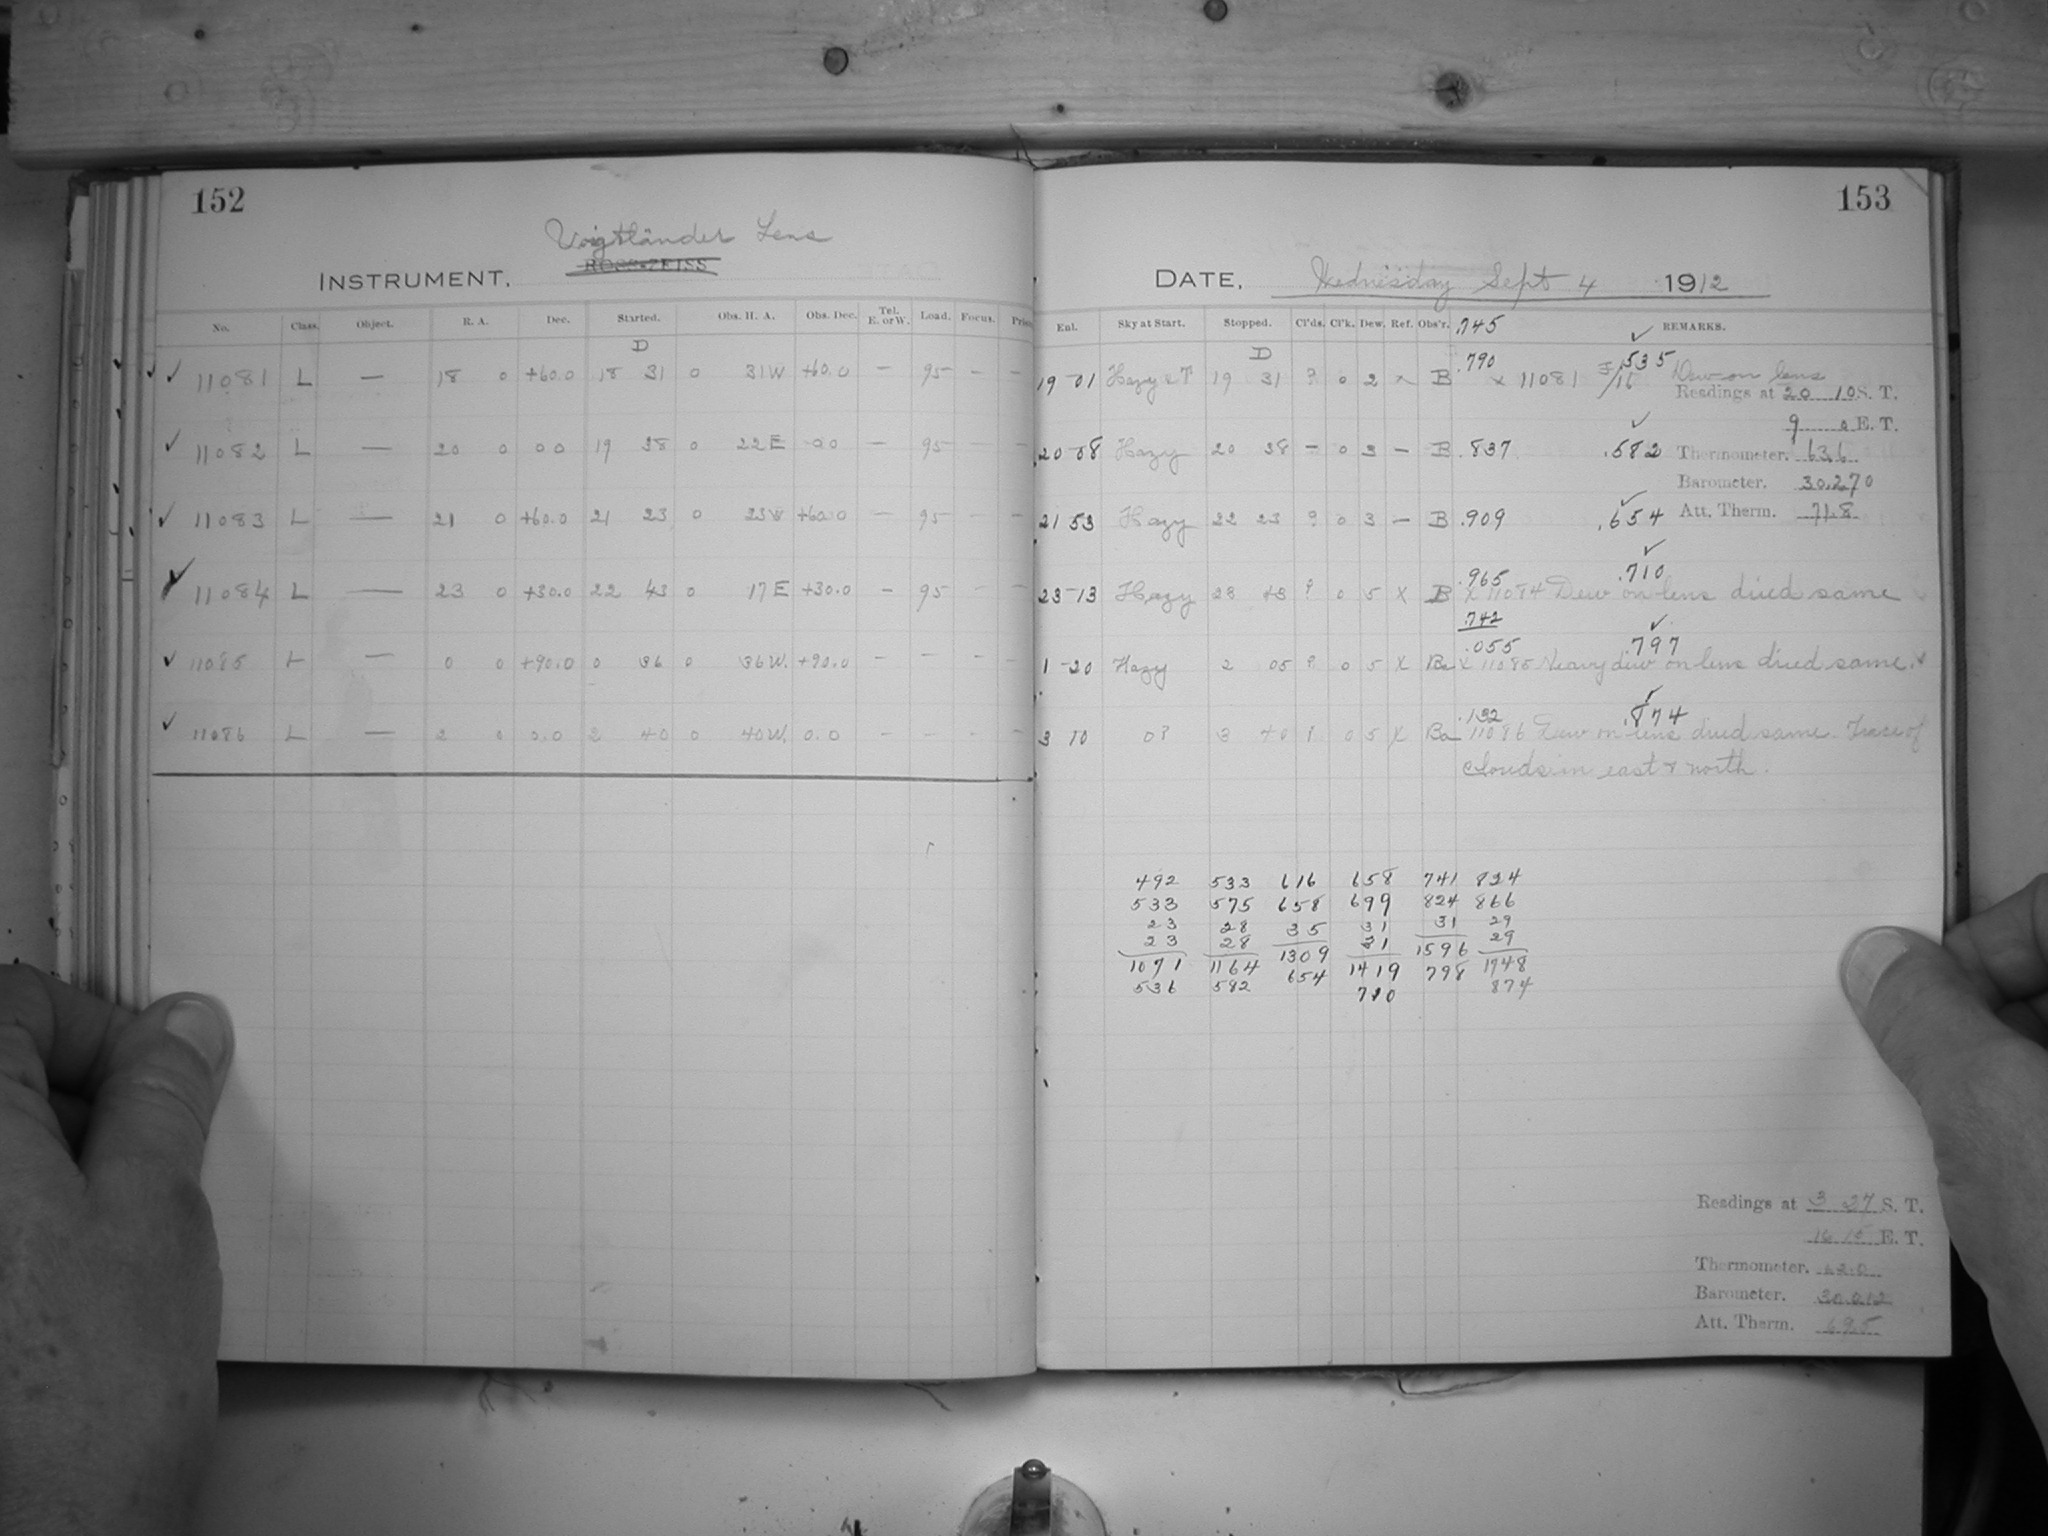 152
Voigtländer Lens
INSTRUMENT. ROSS-ZEISS
No. Class. Object. R. A. Dec. Started. Obs. H. A. Obs. Dec. Tel. E. or W. Load. Focus.
D
11081 L — 18 0 +60.0 18 31 0 31W +60.0 — 95 - -
11082 L — 20 0 00 19 38 0 22E 00 — 95 - -
11083 L — 21 0 +60.0 21 23 0 23W +60.0 — 95 - -
11084 L — 23 0 +30.0 22 43 0 17E +30.0 - 95 - -
11085 L — 0 0 +90.0 0 36 0 36W. +90.0 - - - -
11086 L — 2 0 0.0 2 40 0 40W. 0.0 - - - -
153
DATE. Wednesday Sept 4 1912
Enl. Sky at Start. Stopped. Cl'ds. Cl'k. Dew. Ref. Obs'r. .745 REMARKS.
D
.790 .535
19-01 Hazy & T 19 31 ? 0 2 x B x 11081 Dew on lens
Readings at 20 10 S. T.
9 0 E. T.
20-08 Hazy 20 38 - 0 3 - B .837 .582 Thermometer. 63.6
Barometer. 30.270
21 53 Hazy 22 23 ? 0 3 - B .909 .654 Att. Therm. 71.8
.965 .710
23-13 Hazy 23 43 ? 0 5 X B X 11084 Dew on lens dried same
.742
.055 .797
1-20 Hazy 2 05 ? 0 5 X Ba X 11085 Heavy dew on lens dried same.
.132 .874
3 10 0? 3 40 ? 0 5 X Ba 11086 Dew on lens dried same. Trace of
clouds in east & north.
492 533 616 658 741 824
533 575 658 699 824 866
23 28 35 31 31 29
23 28 1309 31 1596 29
1071 1164 654 1419 798 1748
536 582 710 874
Readings at 3 27 S. T.
16 15 E. T.
Thermometer. 62.0
Barometer. 30.212
Att. Therm. 69.5